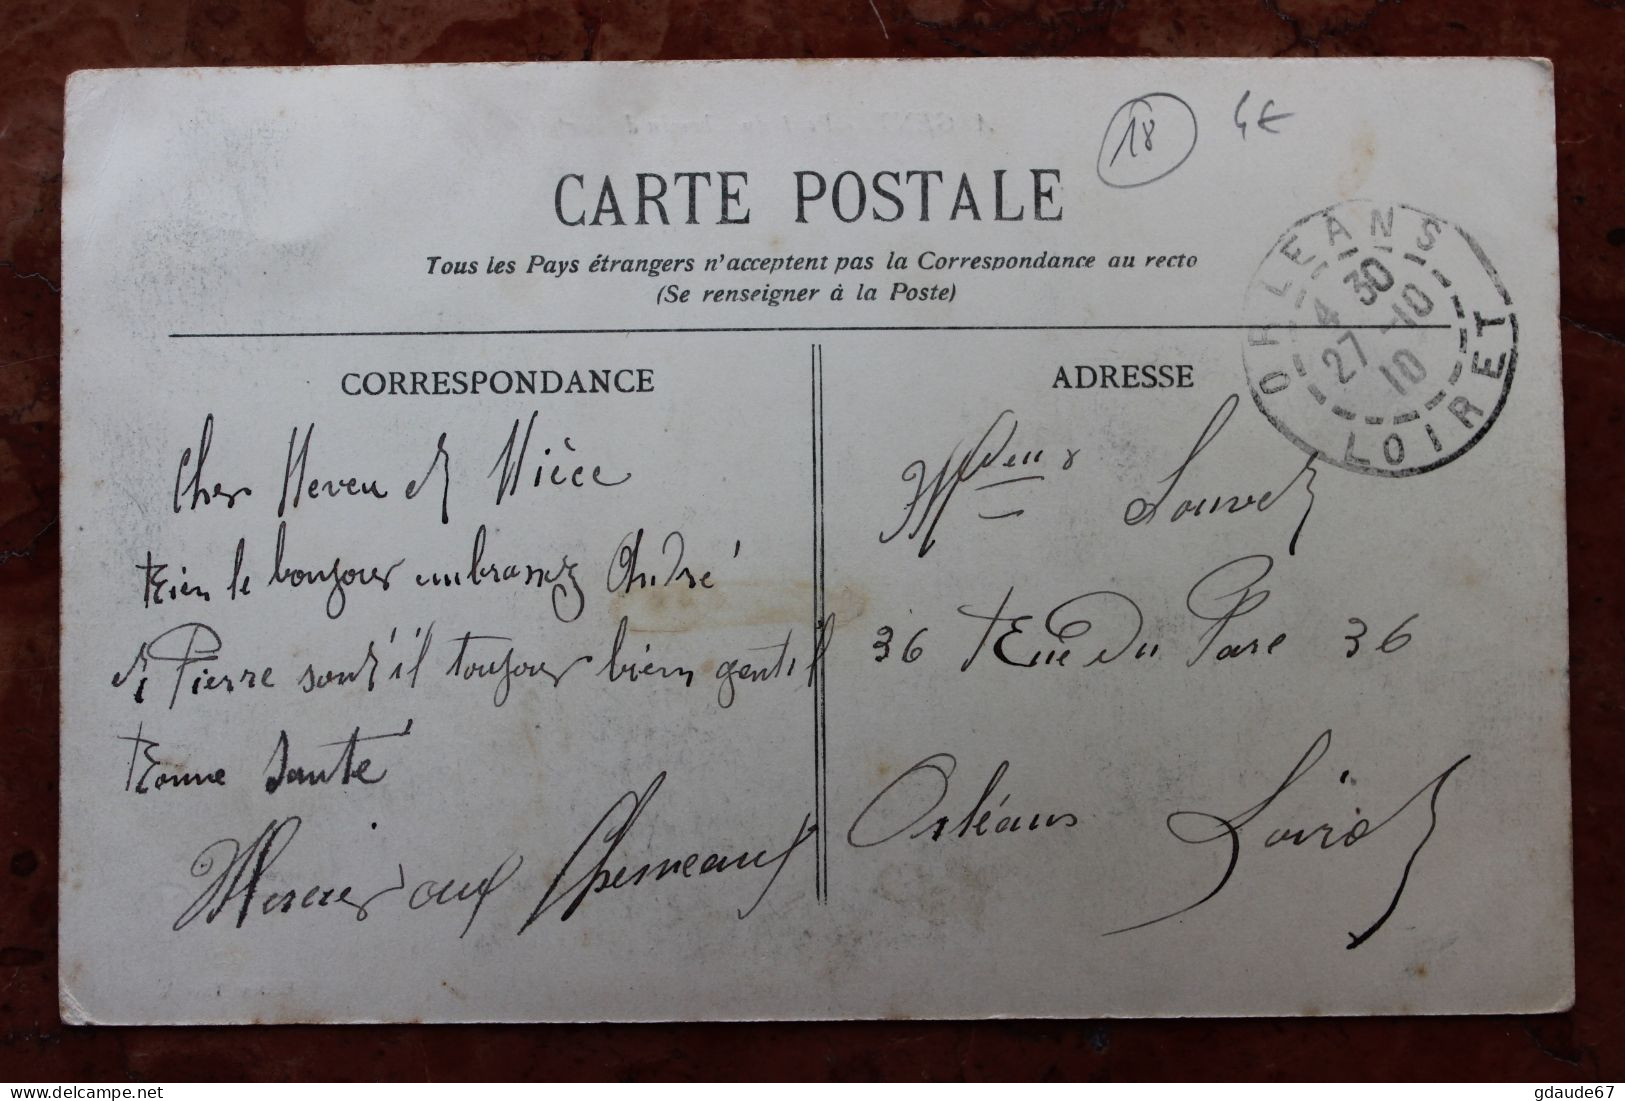 18 4€
CARTE POSTALE
Tous les Pays étrangers n'acceptent pas la Correspondance au recto
(Se renseigner à la Poste)
ORLEANS
4 30
27 -10
10
LOIRET
CORRESPONDANCE
Cher Neveu et Nièce
Bien le bonjour embrassez André
et Pierre sont'il toujour bien gentil
Bonne Santé
Mercier aux Chesneaux
ADRESSE
Louvet
36 Rue Du Parc 36
Orléans Loiret
delcampe.net
gdaude67